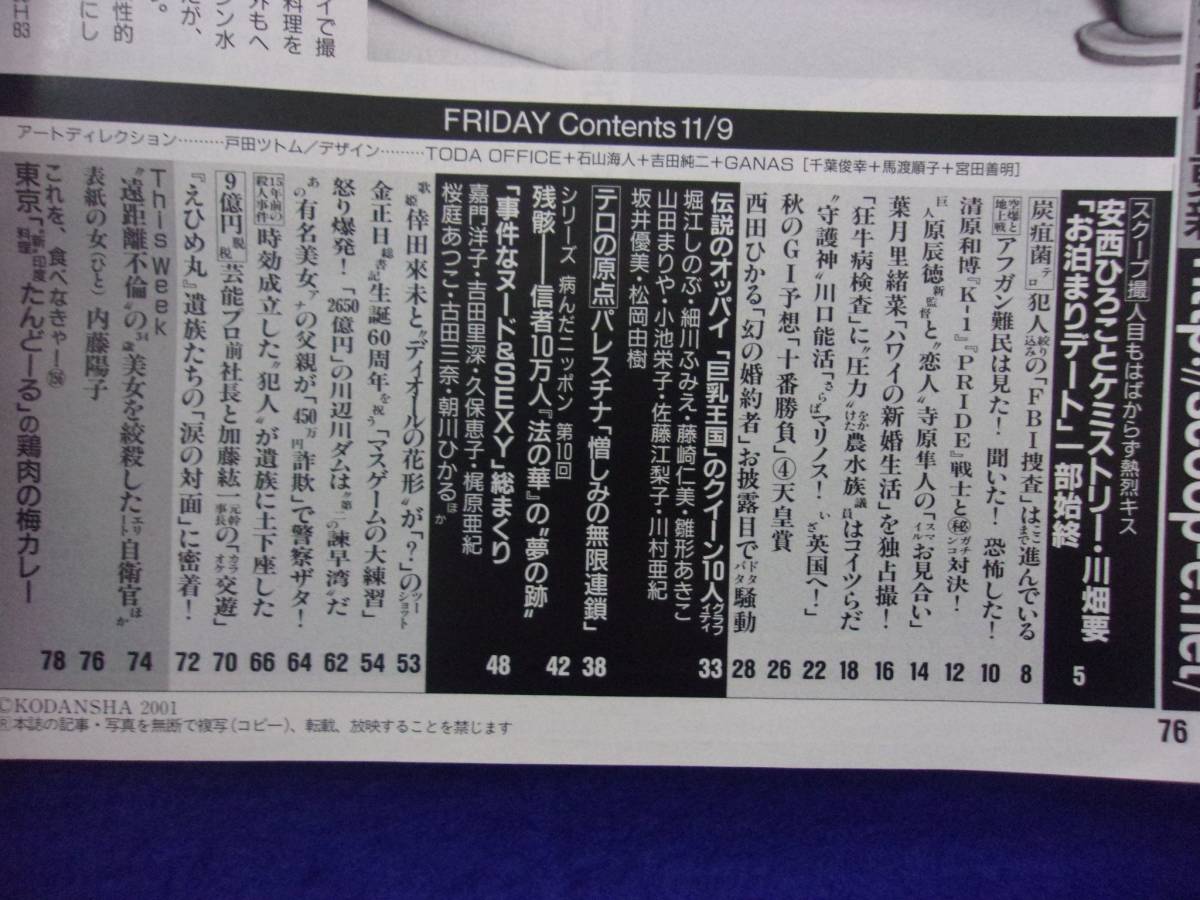 イで撮
料理を
外もへ
ン水
だが、
性的
にし
83
FRIDAY Contents 11/9
アートディレクション………戸田ツトム／デザイン………TODA OFFICE+石山海人+吉田純二+GANAS［千葉俊幸+馬渡順子+宮田善明］
スクープ撮 人目もはばからず熱烈キス
安西ひろことケミストリー・川畑要
「お泊まりデート」一部始終 5
炭疽菌テロ 犯人絞り込みの「FBI捜査」はここまで進んでいる 8
空爆と地上戦 アフガン難民は見た！ 聞いた！ 恐怖した！ 10
清原和博『K-1』『PRIDE』戦士と㊙ガチンコ対決！ 12
巨人原辰徳新監督と〝恋人〟寺原隼人の「スマイルお見合い」 14
葉月里緒菜「ハワイの新婚生活」を独占撮！ 16
「狂牛病検査」に〝圧力〟をかけた農水族議員はコイツらだ 18
〝守護神〟川口能活「さらばマリノス！ いざ英国へ！」 22
秋のGⅠ予想「十番勝負」④天皇賞 26
西田ひかる「幻の婚約者」お披露目でドタバタ騒動 28
伝説のオッパイ「巨乳王国」のクイーン10人グラフィティ 33
堀江しのぶ・細川ふみえ・藤崎仁美・雛形あきこ
山田まりや・小池栄子・佐藤江梨子・川村亜紀
坂井優美・松岡由樹
テロの原点 パレスチナ「憎しみの無限連鎖」 38
シリーズ 病んだニッポン 第10回
残骸──信者10万人『法の華』の〝夢の跡〟 42
「事件なヌード&SEXY」総まくり 48
嘉門洋子・吉田里深・久保恵子・梶原亜紀
桜庭あつこ・古田三奈・朝川ひかるほか
歌姫 倖田來未と〝ディオールの花形〟が「？」のツーショット 53
金正日総書記生誕60周年を祝う「マスゲームの大練習」 54
怒り爆発！「2650億円」の川辺川ダムは〝第二の諫早湾〟だ 62
あの有名美女アナの父親が「450万円詐欺」で警察ザタ！ 64
15年前の殺人事件 時効成立した〝犯人〟が遺族に土下座した 66
9億円脱税 芸能プロ前社長と加藤紘一元幹事長の「カラオケ交遊」 70
『えひめ丸』遺族たちの「涙の対面」に密着！ 72
This Week
〝遠距離不倫〟の34歳美女を絞殺したエリート自衛官ほか 74
表紙の女(ひと) 内藤陽子 76
これを、食べなきゃー
東京「新・印度料理たんどーる」の鶏肉の梅カレー 78
©KODANSHA 2001
Ⓡ本誌の記事・写真を無断で複写(コピー)、転載、放映することを禁じます
76